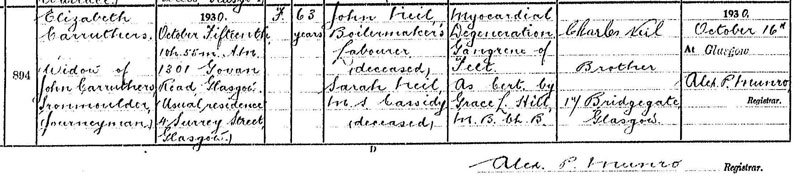 Elizabeth
Carruthers.
894
Widow of
John Carruthers
Ironmoulder
(Journeyman.)
1930.
October Fifteenth
10h. 55m. A.M.
1301 Govan
Road, Glasgow.
(Usual residence
4 Surrey Street,
Glasgow.)
F.
63
years
John Neil,
Boilermaker's
Labourer
(deceased)
Sarah Neil,
M.S. Cassidy
(deceased)
Myocardial
Degeneration
Gangrene of
Feet.
As Cert. by
Grace L. Hill,
M.B. Ch.B.
Charles Neil
Brother
17 Bridgegate
Glasgow.
1930.
October 16th
At Glasgow
Alex. P. Munro,
Registrar.
D
Alex. P. Munro Registrar.